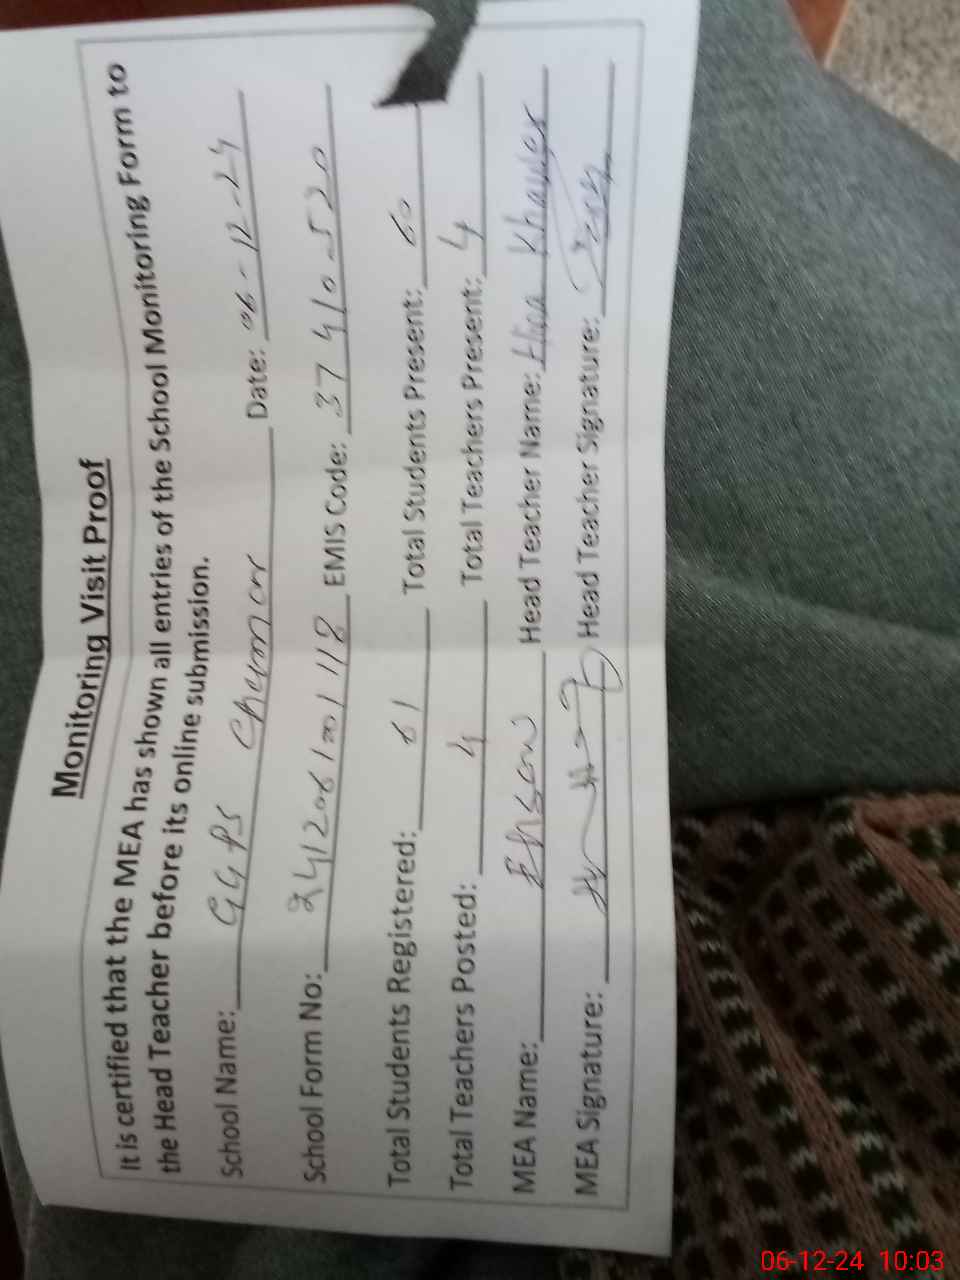 Monitoring Visit Proof
It is certified that the MEA has shown all entries of the School Monitoring Form to
the Head Teacher before its online submission.
School Name: GGPS Date: 06-12-24
School Form No: 2412061001118 EMIS Code: 37410520
Total Students Registered: 61 Total Students Present: 60
Total Teachers Posted: 4 Total Teachers Present: 4
MEA Name: Ehsan Head Teacher Name: Hina
MEA Signature: Head Teacher Signature:
06-12-24 10:03